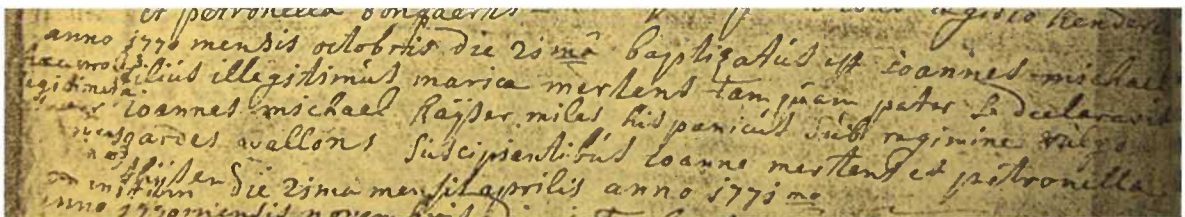 et petronella bongaerts
anno 1770 mensis octobris die 21ma baptizatus est ioannes michael
filius illegitimus maria mertens tamquam pater se declaravit
ioannes michael kayser miles hispanicus sub regimine vulgo
gardes wallons suscipientibus ioanne mertens et petronella
die 21ma mensis aprilis anno 1771 mo
anno 1770 mensis novembris